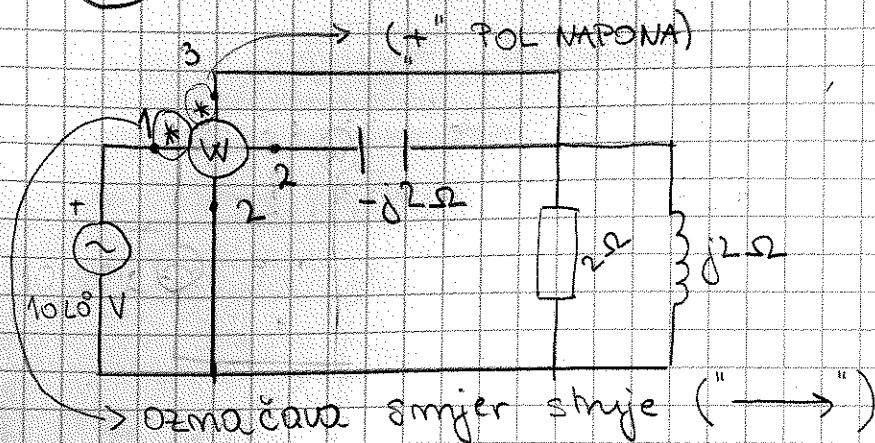 3 ("+" POL NAPONA)
1 * *
W
2
-j2Ω
+ 2
2Ω
j2Ω
10∠0° V
označava smjer struje ("→")